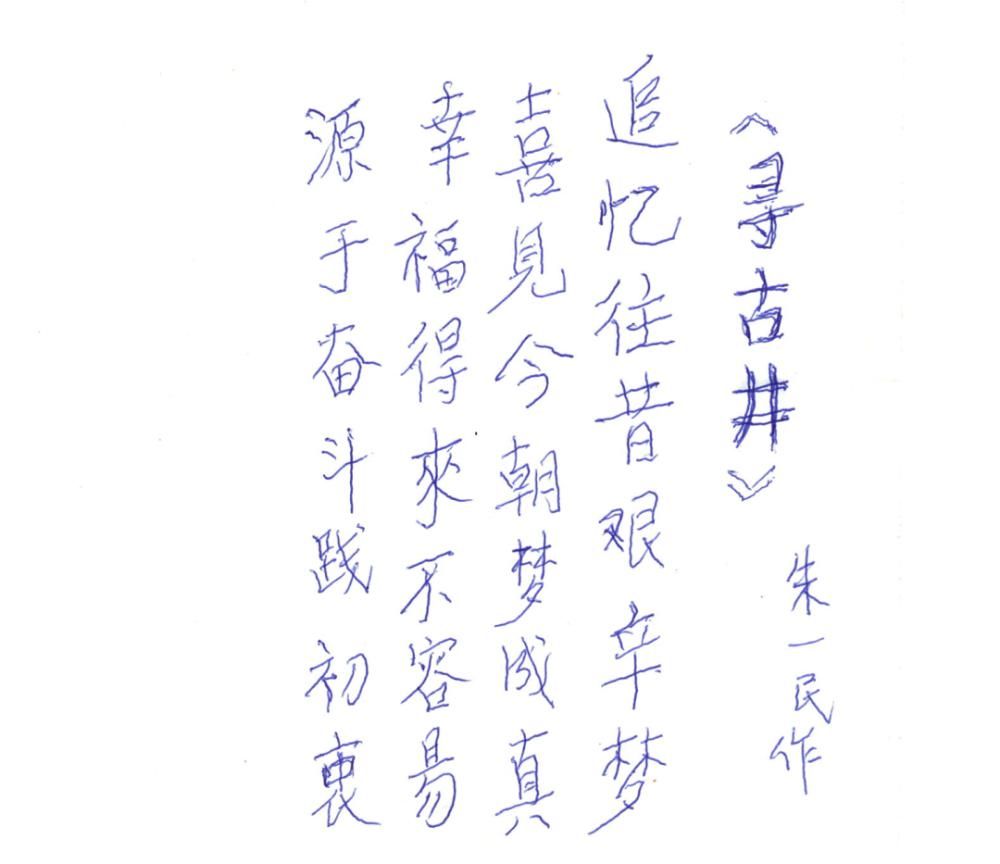 《寻古井》
朱一民作
追忆往昔艰辛梦
喜見今朝梦成真
幸福得來不容易
源于奋斗践初衷